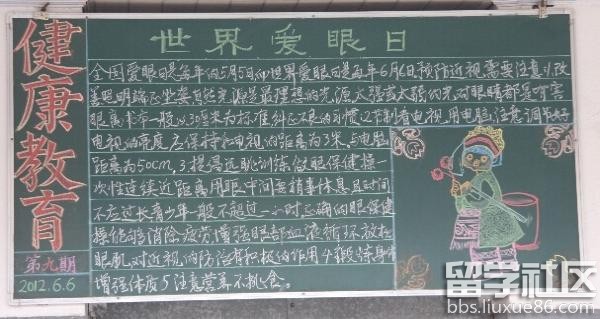 世界爱眼日
健康教育
第九期
2012.6.6
全国爱眼日是每年的5月5日和世界爱眼日是每年6月6日预防近视需要注意1.改
善照明端正坐姿自然光源是最理想的光源,太强或太弱的光对眼睛都是有害
眼离书本一般以30厘米为标准纠正不良的习惯2.控制看电视,用电脑,注意调节好
电视的亮度,保持和电视的距离为3米,与电脑
距离为50cm,3.提高远眺训练做眼保健操
一次性连续近距离用眼中间要稍事休息且时间
不应过长青少年一般不超过一小时正确的眼保健
操能够消除疲劳增强眼部血液循环放松
眼肌,对近视的防治有积极的作用4.锻炼身体
增强体质5注意营养不挑食。
留学社区
bbs.liuxue86.com